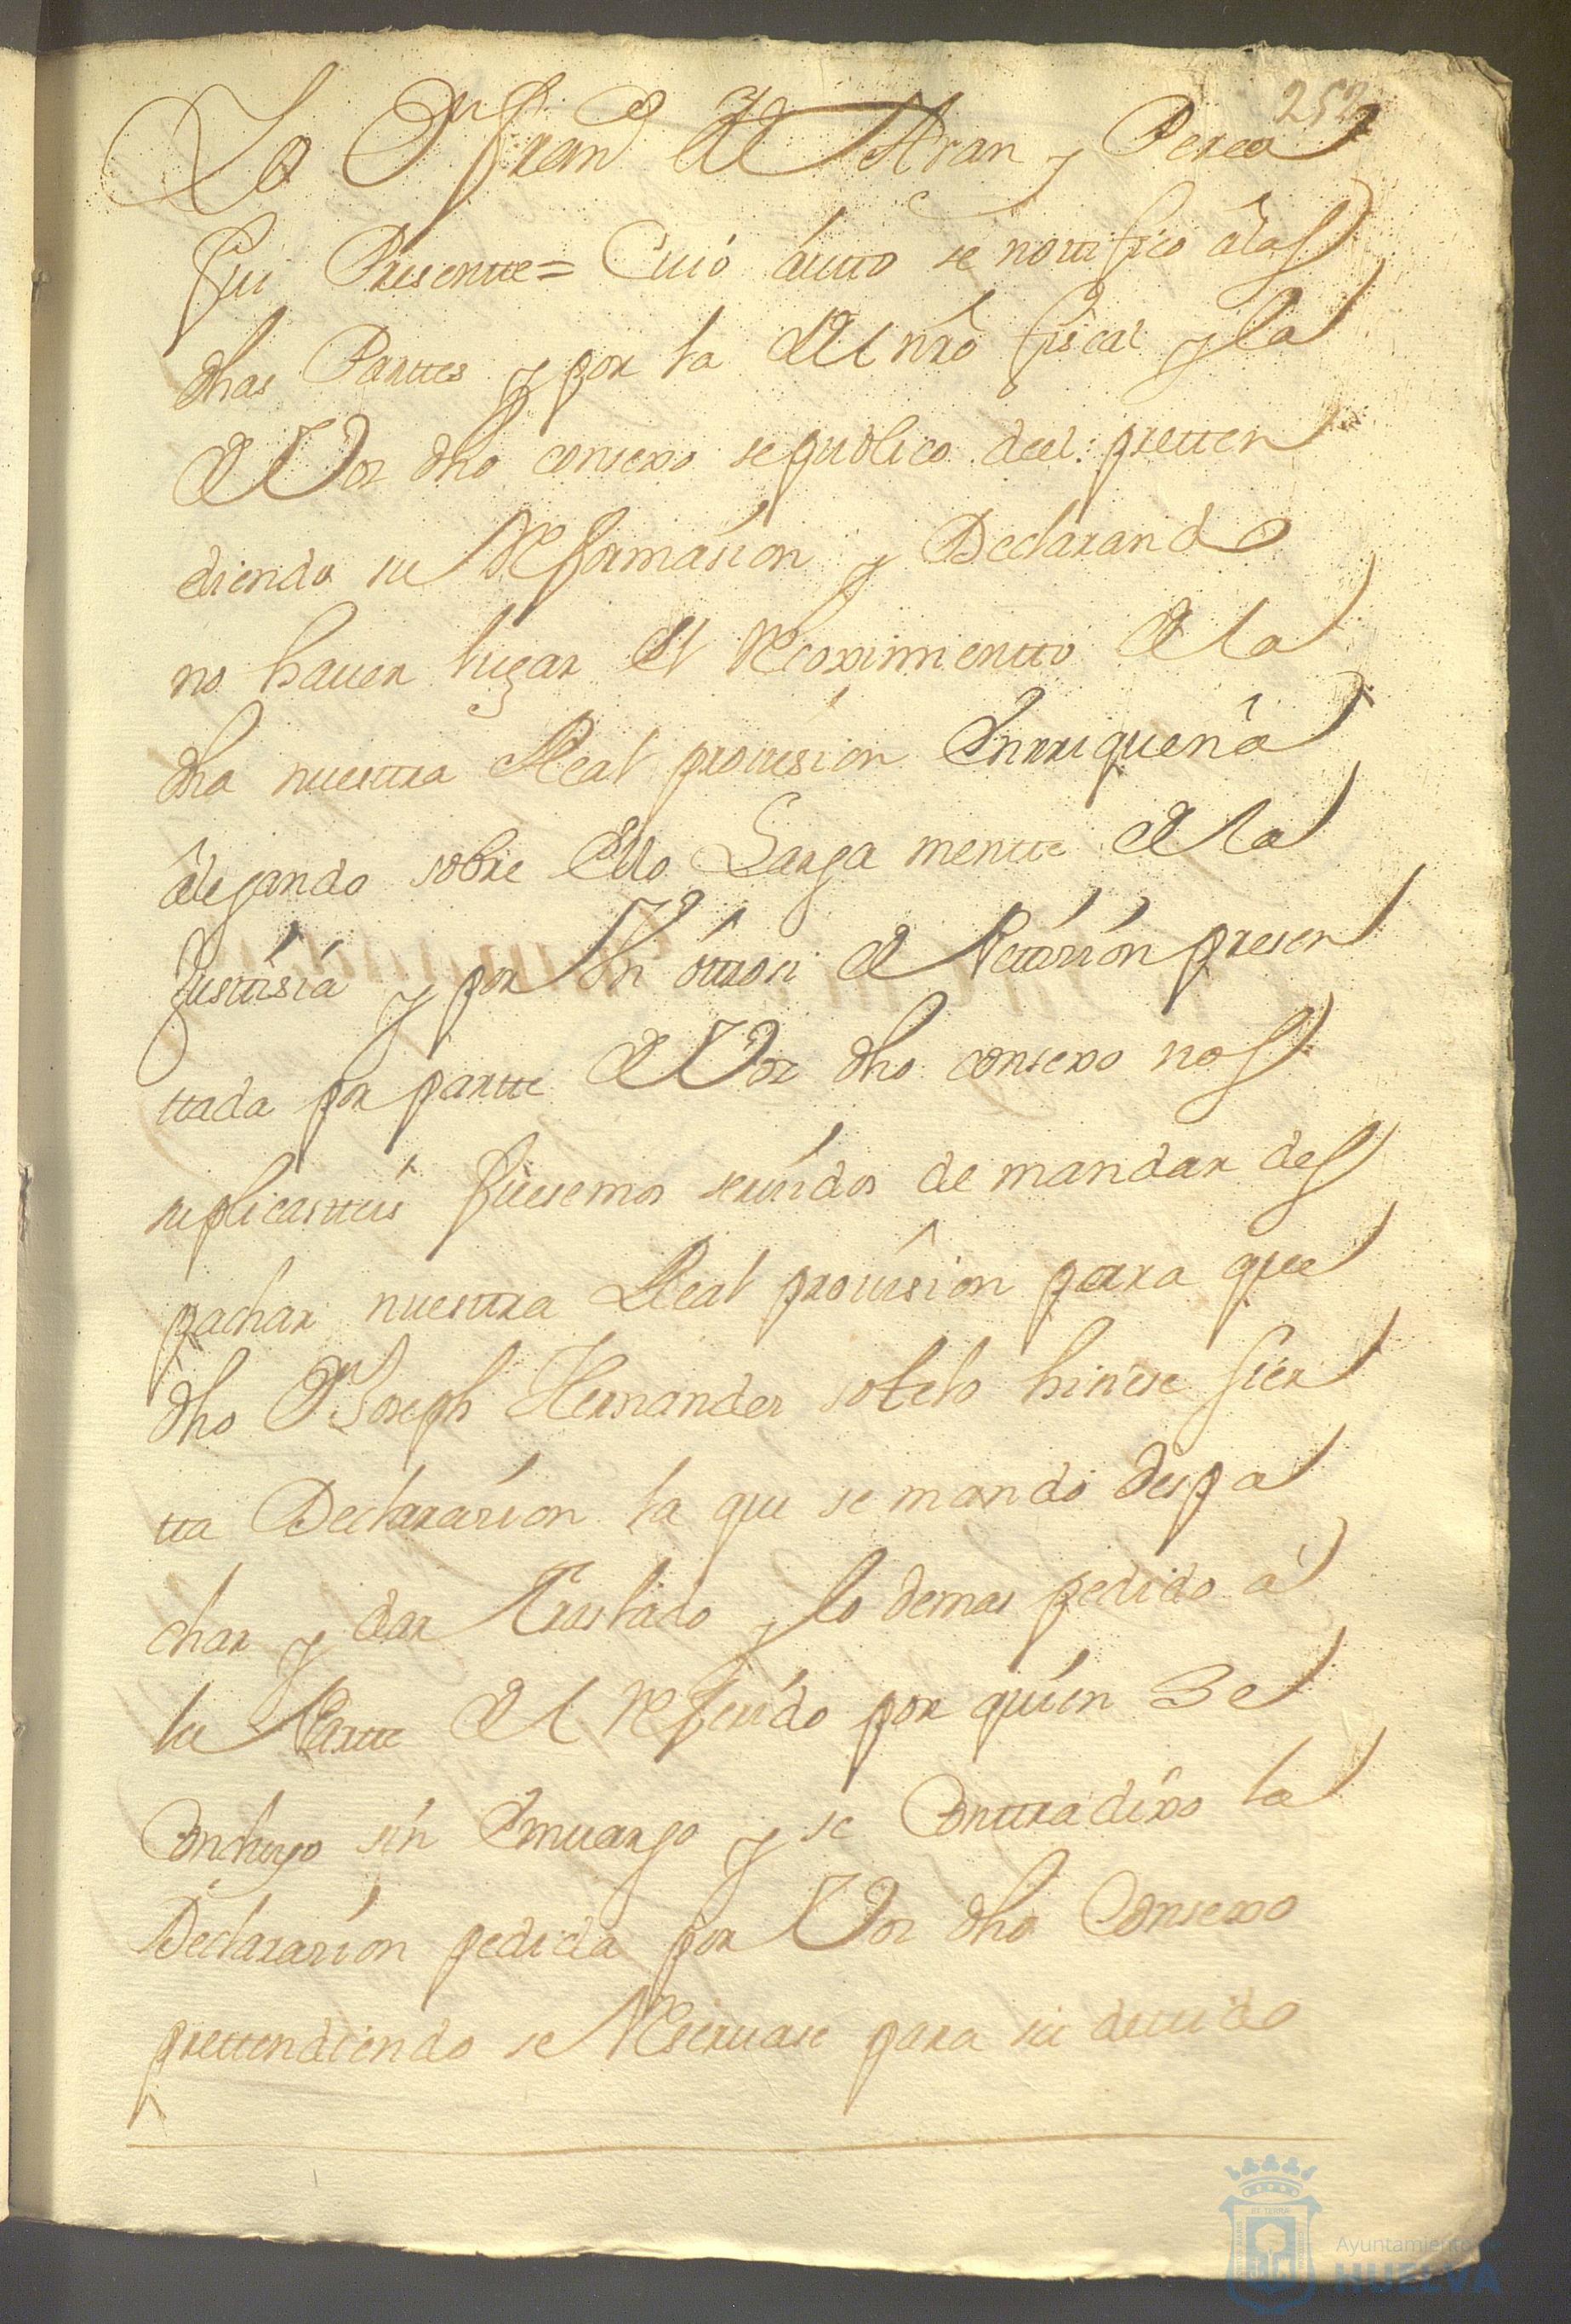 252
Yo Dn Franco del Aran y Perea
fui Presentte = Cuió áutto se nottifico álas
dhas Parttes y por la del nrō fiscal y la
de Vos dho consexo se suplico deel: pretten
diendo su Reformásion y Declarando
no haver lugar el Recoximientto de la
dha nuesttra Real provision Enrriqueña
álegando sobre Ello Larga mentte de la
Justtisiá y por Vn óttrosi de Petición presen
ttada por partte de Vos dho consexo nos
suplicastteis fuesemos servidos de mandar des
pachar nuesttra Real provision para que
dho Dn Joseph Hernandez sotelo hiciese sier
tta Declaración la que se mandó despa
char y dar Traslado y lo demas pedido á
la Partte del Referido por quíen Se
Concluyo sin Emvargo y se Conttradixo la
Declaración pedida por Vos dho Consexo
prettendiendo se Reservase para su devido
Ayuntamiento de
HUELVA